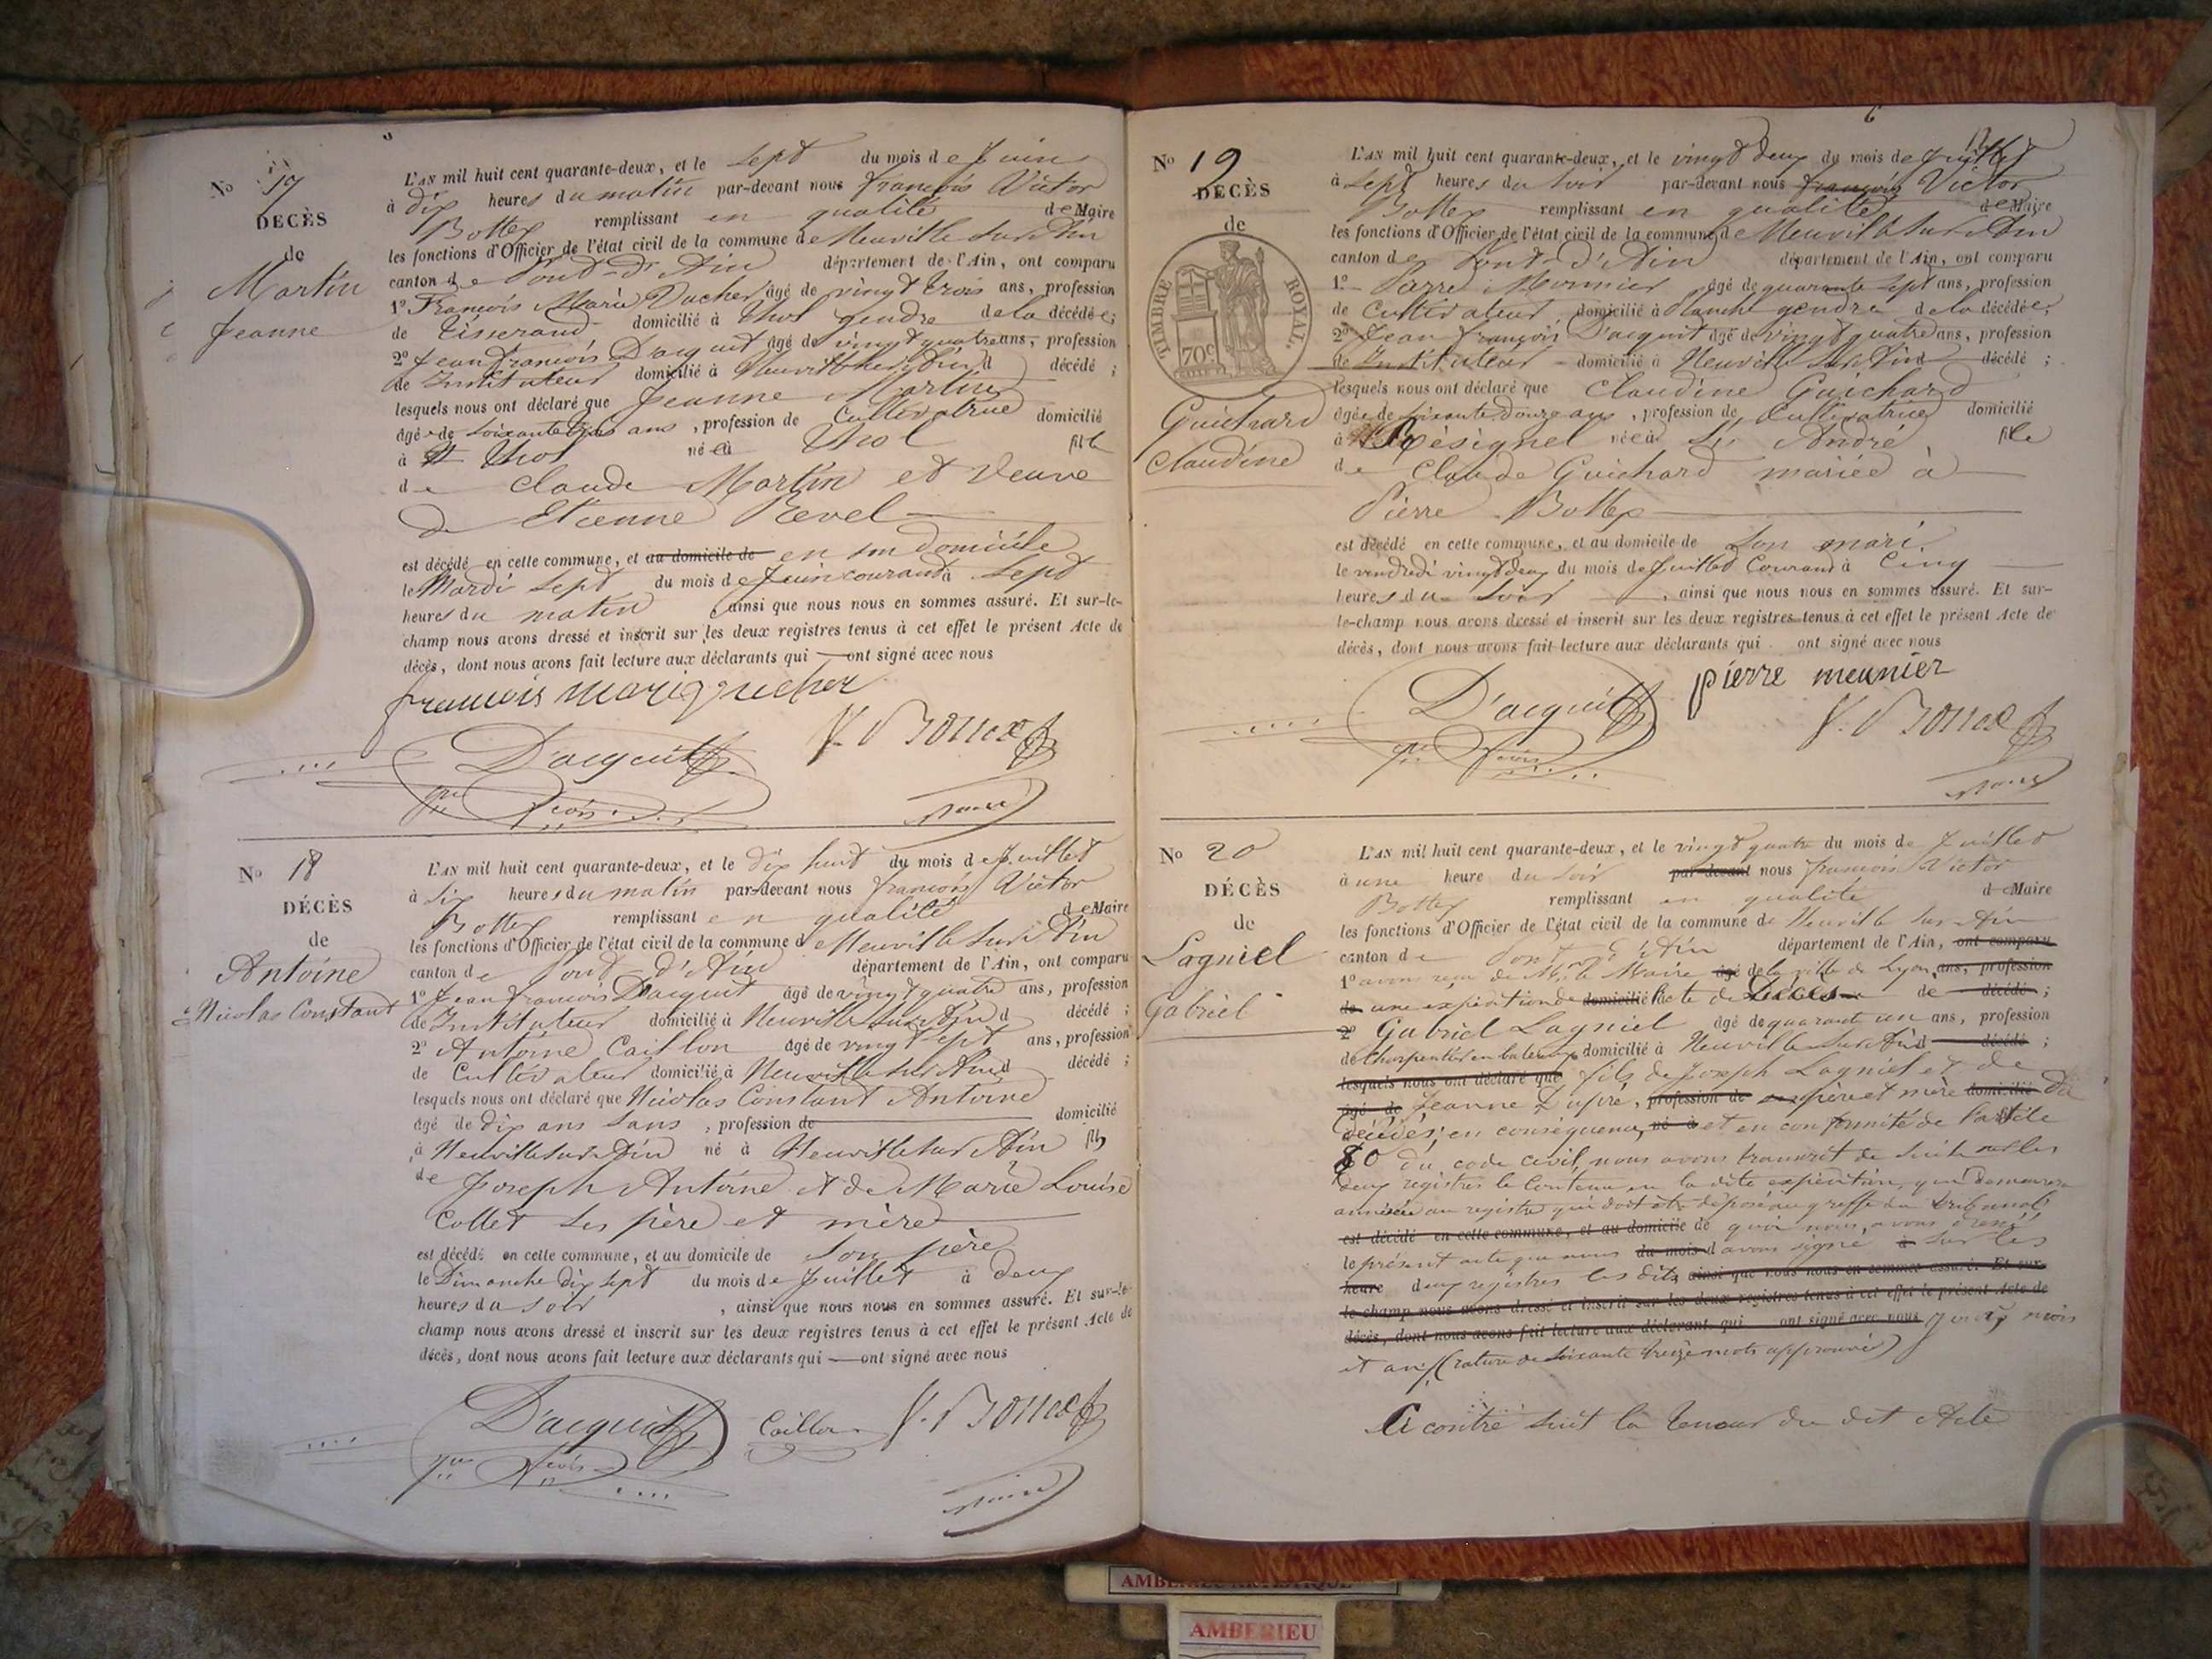 No 17
DECÈS
de
Martin
Jeanne
L'AN mil huit cent quarante-deux, et le sept du mois de Juin
à dix heures du matin par-devant nous françois Victor
Bottex remplissant en qualité de Maire
les fonctions d'Officier de l'état civil de la commune de Neuville sur Ain
canton de Pont-d'Ain département de l'Ain, ont comparu
1º François Marie Vucher âgé de vingt trois ans, profession
de Tisserand domicilié à Thol gendre de la décédée;
2º Jean françois D'acquit âgé de vingt quatre ans, profession
de Instituteur domicilié à Neuville sur Ain d décédé ;
lesquels nous ont déclaré que Jeanne Martin
âgée de soixante ans , profession de Cultivatrice domicilié
à Thol née à Thol fille
de Claude Martin et Veuve
de Etienne Revel
est décédé en cette commune, et au domicile de en son domicile
le Mardi sept du mois de Juin courant à sept
heures du matin , ainsi que nous nous en sommes assuré. Et sur-le-
champ nous avons dressé et inscrit sur les deux registres tenus à cet effet le présent Acte de
décès, dont nous avons fait lecture aux déclarants qui ont signé avec nous
D'acquit V. Bottex
maire
No 18
DÉCÈS
de
Antoine
Nicolas Constant
L'AN mil huit cent quarante-deux, et le dix huit du mois de Juillet
à dix heures du matin par-devant nous françois Victor
Bottex remplissant en qualité de Maire
les fonctions d'Officier de l'état civil de la commune de Neuville sur Ain
canton de Pont-d'Ain département de l'Ain, ont comparu
1º Jean françois D'acquit âgé de vingt quatre ans, profession
de Instituteur domicilié à Neuville sur Ain d décédé ;
2º Antoine Caillon âgé de vingt sept ans, profession
de Cultivateur domicilié à Neuville sur Ain d décédé ;
lesquels nous ont déclaré que Nicolas Constant Antoine
âgé de dix ans sans , profession de domicilié
à Neuville sur Ain né à Neuville sur Ain fils
de Joseph Antoine et de Marie Louise
Collet ses père et mère
est décédé en cette commune, et au domicile de son père
le Dimanche dix sept du mois de Juillet à deux
heures du soir , ainsi que nous nous en sommes assuré. Et sur-le-
champ nous avons dressé et inscrit sur les deux registres tenus à cet effet le présent Acte de
décès, dont nous avons fait lecture aux déclarants qui ont signé avec nous
D'acquit Caillon V. Bottex
maire
6
No 19
DECÈS
de
TIMBRE ROYAL.
70c
Guichard
Claudine
L'AN mil huit cent quarante-deux, et le vingt deux du mois de Juillet
à sept heures du soir par-devant nous françois Victor
Bottex remplissant en qualité de Maire
les fonctions d'Officier de l'état civil de la commune de Neuville sur Ain
canton de Pont-d'Ain département de l'Ain, ont comparu
1º Pierre Monnier âgé de quarante sept ans, profession
de Cultivateur domicilié à Planche gendre de la décédée;
2º Jean françois D'acquit âgé de vingt quatre ans, profession
de Instituteur domicilié à Neuville sur Ain d décédé ;
lesquels nous ont déclaré que Claudine Guichard
âgée de soixante douze ans , profession de Cultivatrice domicilié
à Résignel née à St André fille
de Claude Guichard mariée à
Pierre Bottex
est décédé en cette commune, et au domicile de son mari.
le vendredi vingt deux du mois de Juillet Courant à Cinq
heures du soir , ainsi que nous nous en sommes assuré. Et sur-
le-champ nous avons dressé et inscrit sur les deux registres tenus à cet effet le présent Acte de
décès, dont nous avons fait lecture aux déclarants qui ont signé avec nous
pierre meunier
D'acquit V. Bottex
maire
No 20
DÉCÈS
de
Lagniel
Gabriel
L'AN mil huit cent quarante-deux, et le vingt quatre du mois de Juillet
à une heure du soir par-devant nous françois Victor
Bottex remplissant en qualité de Maire
les fonctions d'Officier de l'état civil de la commune de Neuville sur Ain
canton de Pont d'Ain département de l'Ain, ont comparu
1º avons reçu de Mr. le Maire âgé de la ville de Lyon, ans, profession
de une expédition de domicilié l'acte de Décès de décédé ;
2º Gabriel Lagniel âgé de quarante un ans, profession
de charpentier en bateaux domicilié à Neuville sur Ain d décédé ;
lesquels nous ont déclaré que fils de Joseph Lagniel et de
âgé de Jeanne Dupré, profession de père et mère domicilié
décédés; en conséquence, né à et en conformité de l'article
80 du code civil, nous avons transcrit de suite sur les
deux registres le contenu en la dite expédition, qui demeurera
annexée au registre qui doit être déposé au greffe du tribunal
est décédé en cette commune, et au domicile de quoi nous avons dressé
le présent acte que nous du mois d avons signé à sur les
heure deux registres les dits ainsi que nous nous en sommes assuré. Et sur
le-champ nous avons dressé et inscrit sur les deux registres tenus à cet effet le présent Acte de
décès, dont nous avons fait lecture aux déclarants qui ont signé avec nous jour, mois
et an (rature de soixante treize mots approuvée)
Ci contre suit la teneur du dit Acte
AMBERIEU